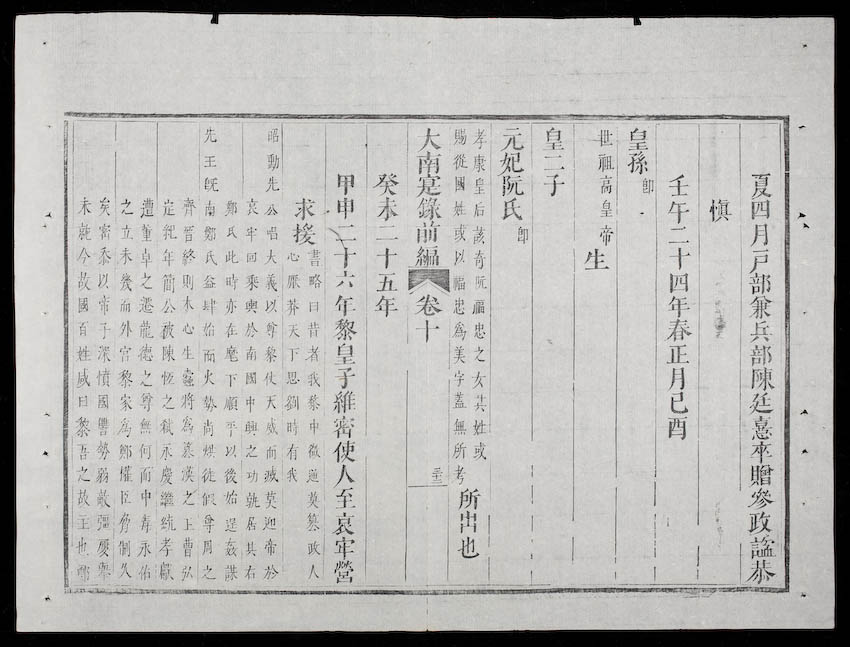 夏四月戸部兼兵部陳廷憙卒贈參政謚恭
慎
壬午二十四年春正月己酉
皇孫即
世祖高皇帝生
皇二子
元妃阮氏即
孝康皇后該奇阮福忠之女其姓或
賜從國姓或以福忠爲美字蓋無所考
所出也
大南寔錄前編 卷十 三十二
癸未二十五年
甲申二十六年黎皇子維密使人至哀牢營
求援書略曰昔者我黎中微逆莫篡政人
心厭莽天下思劉時有我
昭勳先公唱大義以尊黎仗天威而滅莫迎帝於
哀牢回乘輿於南國中興之功孰居其右
鄭氏此時亦在麾下順平以後始逞姦謀
先王旣南鄭氏益肆始而火勢尚烘徒假尊周之
齊晉終則木心生蠧將爲篡漢之上曹弘
定紀年簡公被陳恆之弑永慶繼統孝獻
遭董卓之遷龍德之尊無何而中毒永佑
之立未幾而外宮黎家爲鄭權臣脅制久
矣密忝以帝子深憤國讐勢弱敵彊屢擧
未就今故國百姓咸曰黎吾之故王也鄭